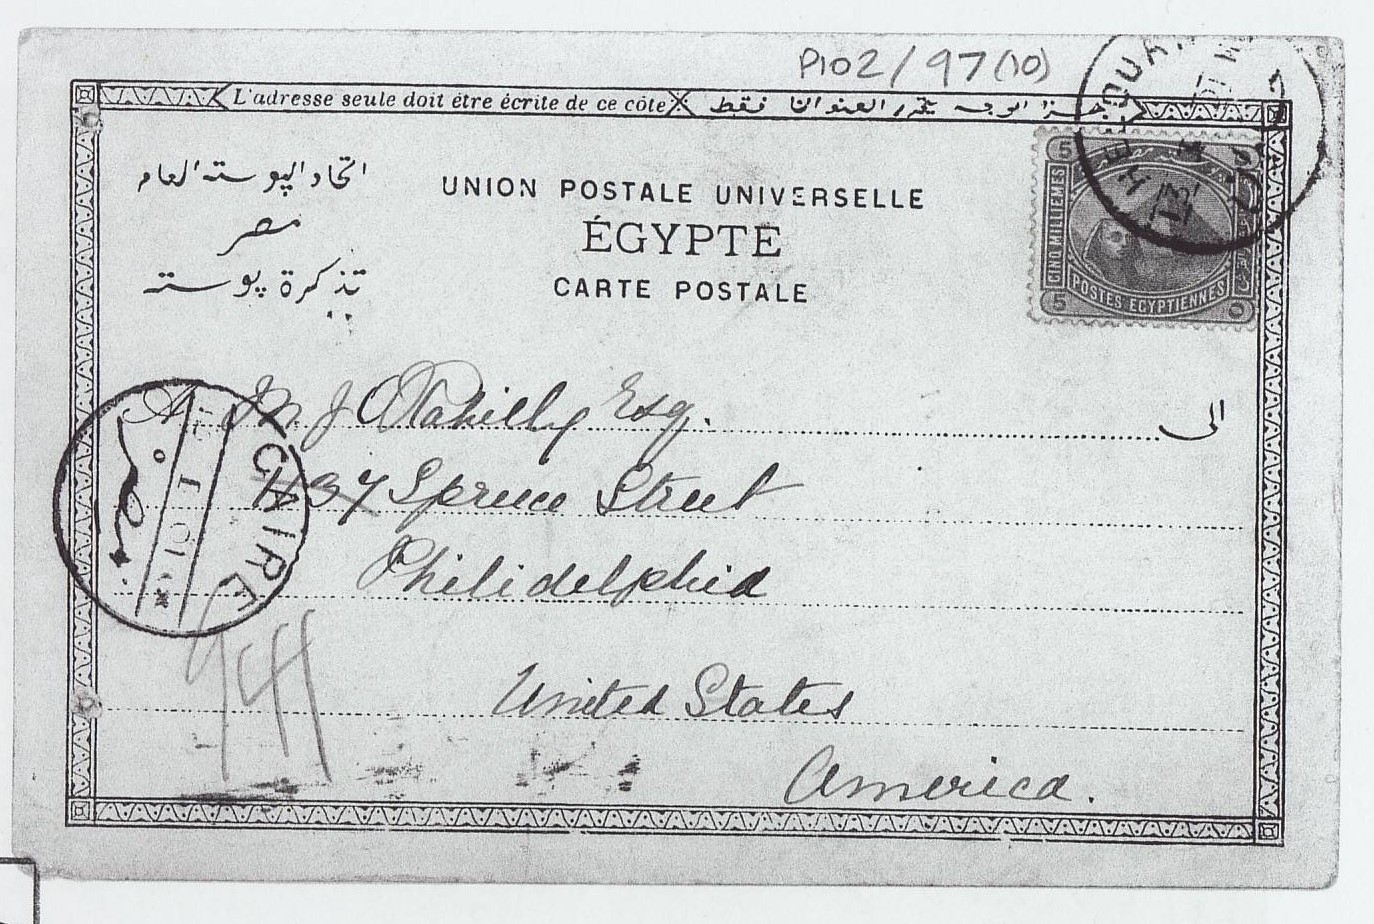 P102/97(10)
L'adresse seule doit être écrite de ce côte
هذا الوجه يتحرر العنوان فقط
اتحاد البوسته العام
مصر
تذكرة بوسته
UNION POSTALE UNIVERSELLE
ÉGYPTE
CARTE POSTALE
5
CINQ MILLIEMES
POSTES EGYPTIENNES
5
الى
M J O'Rahilly Esq.
1137 Spruce Street
Philidelphia
United States
America.
CAIRE